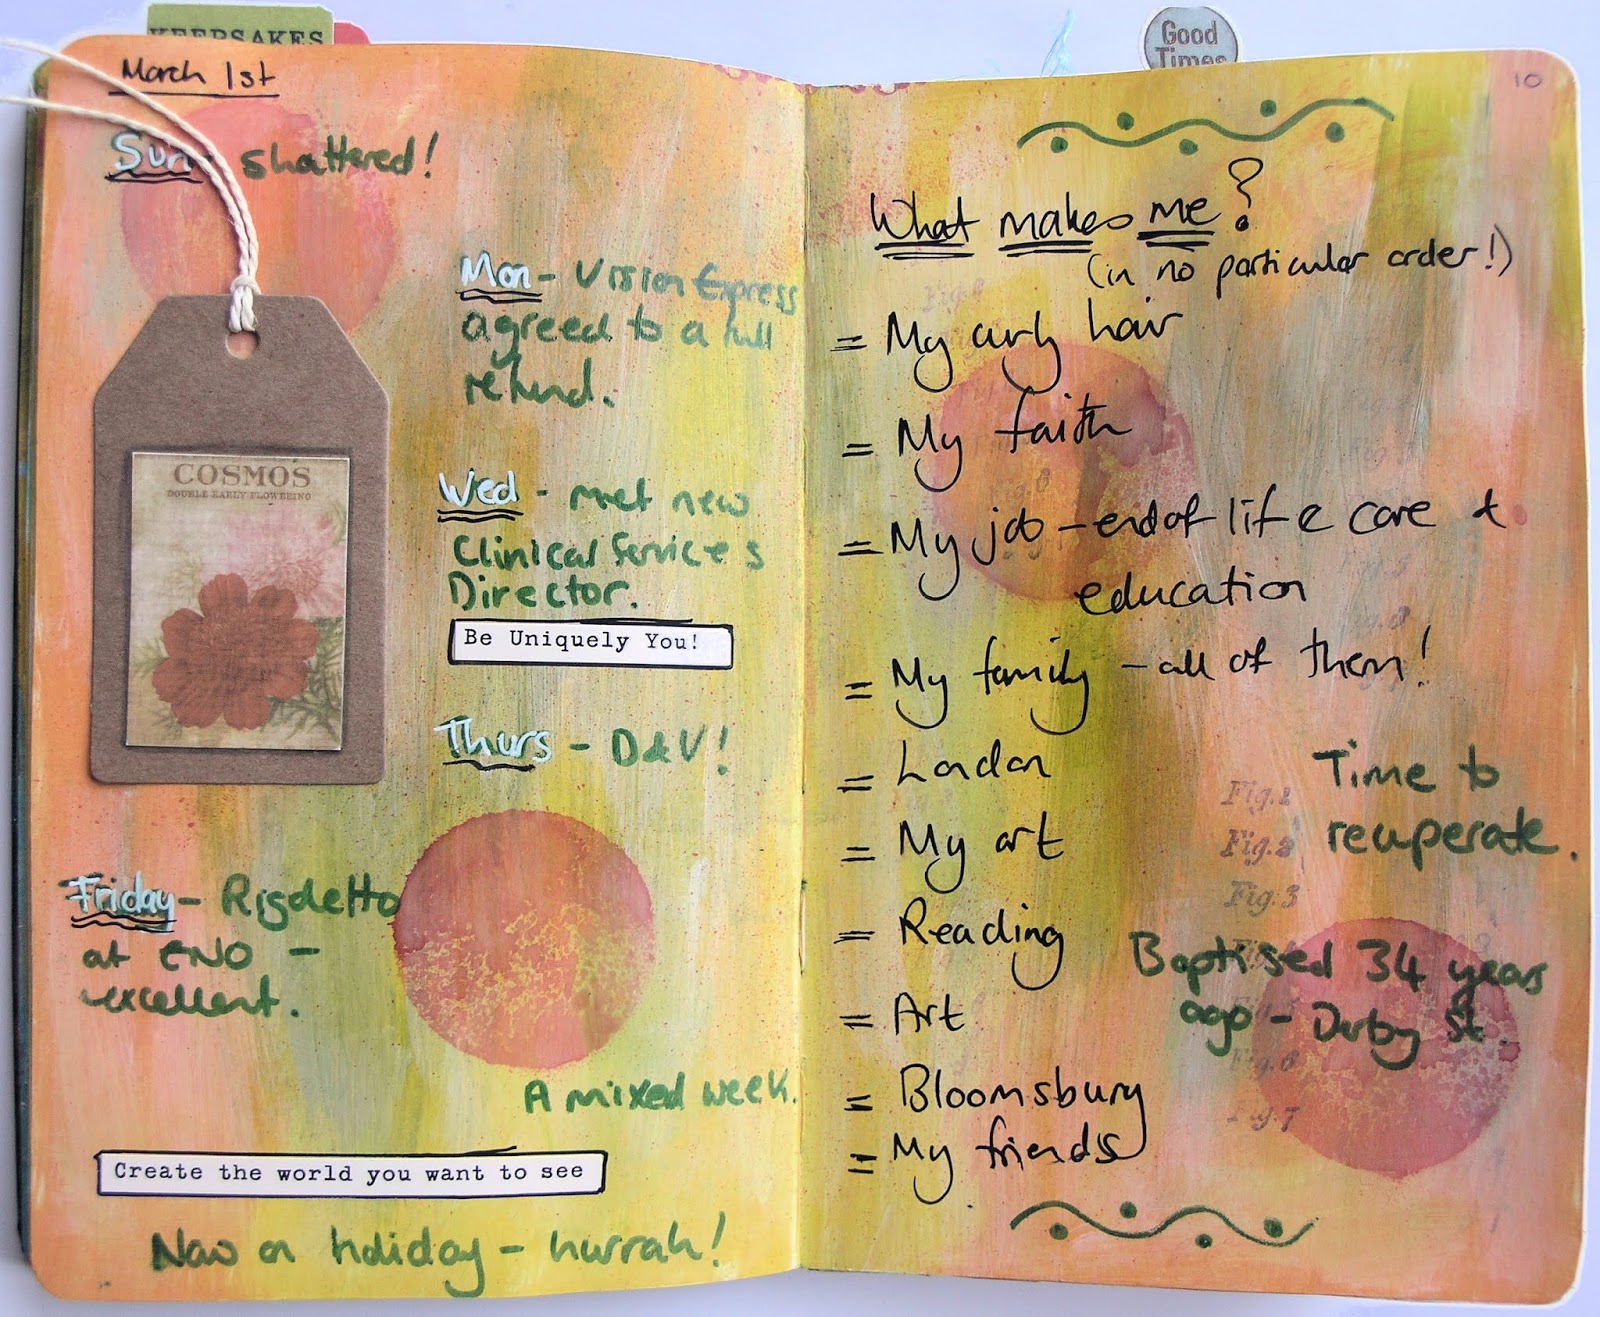 KEEPSAKES
March 1st
Sun - shattered!
Mon - Vision Express
agreed to a full
refund.
COSMOS
DOUBLE EARLY FLOWERING
Wed - met new
Clinical Services
Director.
Be Uniquely You!
Thurs - D & V!
Friday - Rigoletto
at ENO -
excellent.
A mixed week.
Create the world you want to see
Now on holiday - hurrah!
Good
Times
10
What makes me?
(in no particular order!)
= My curly hair
= My faith
= My job - end of life care &
education
= My family - all of them!
= London
= My art
= Reading
= Art
= Bloomsbury
= My friends
Time to
recuperate.
Baptised 34 years
ago - Derby St.
Fig.1
Fig.2
Fig.3
Fig.6
Fig.7